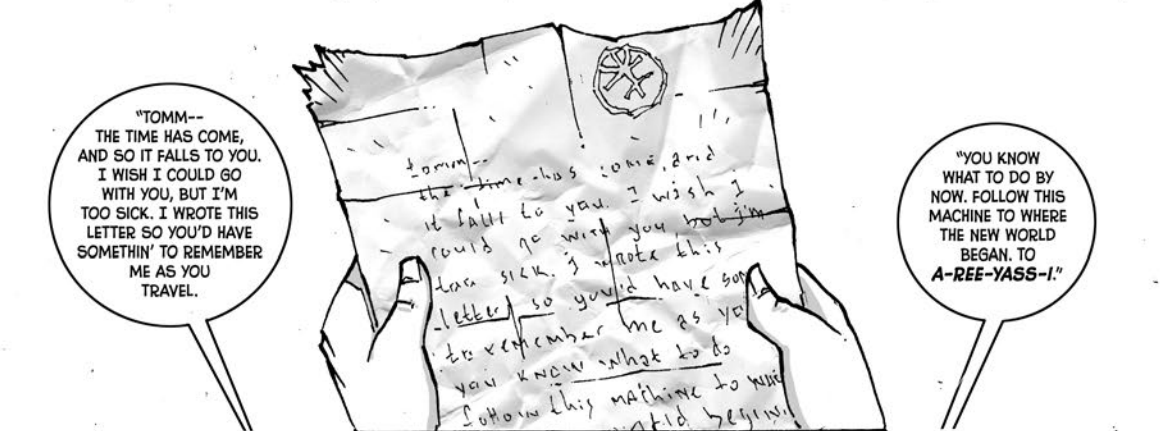 "TOMM--
THE TIME HAS COME,
AND SO IT FALLS TO YOU.
I WISH I COULD GO
WITH YOU, BUT I'M
TOO SICK. I WROTE THIS
LETTER SO YOU'D HAVE
SOMETHIN' TO REMEMBER
ME AS YOU
TRAVEL.
tomm--
the time has come, and
it falls to you. I wish I
could go with you, but i'm
too sick. I wrote this
letter so you'd have som
to remember me as yo
you know what to do
follow this machine to
begin
"YOU KNOW
WHAT TO DO BY
NOW. FOLLOW THIS
MACHINE TO WHERE
THE NEW WORLD
BEGAN. TO
A-REE-YASS-I."